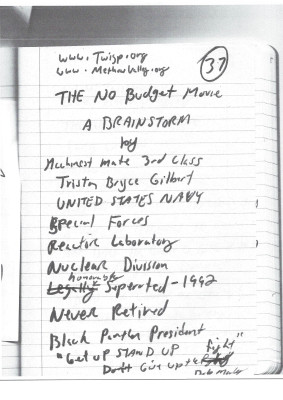 www.Twisp.org
www.MethowValley.org
37
THE NO Budget Movie
A BRAINSTORM
by
Machinest Mate 3rd Class
Triston Bryce Gilbert
UNITED STATES NAVY
Special Forces
Reactor Laboratory
Nuclear Division
honorably
Legally Seperated - 1992
Never Retired
Black Panther President
"Get UP STAND UP
Don't Give up the Fight"
Bob Marley